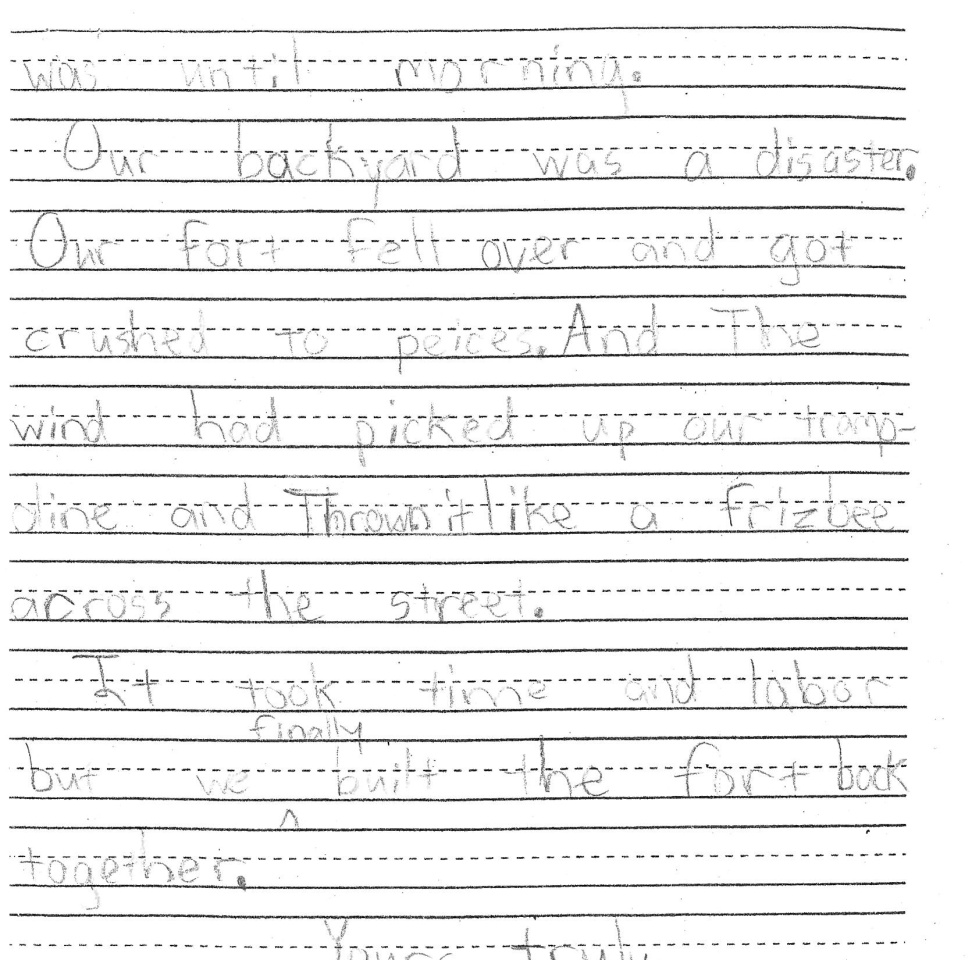 was until morning.
Our backyard was a disaster.
Our fort fell over and got
crushed to peices. And The
wind had picked up our tramp-
oline and Thrown it like a frizbee
across the street.
It took time and labor
finally
but we ^ built the fort back
together.
Yours truly